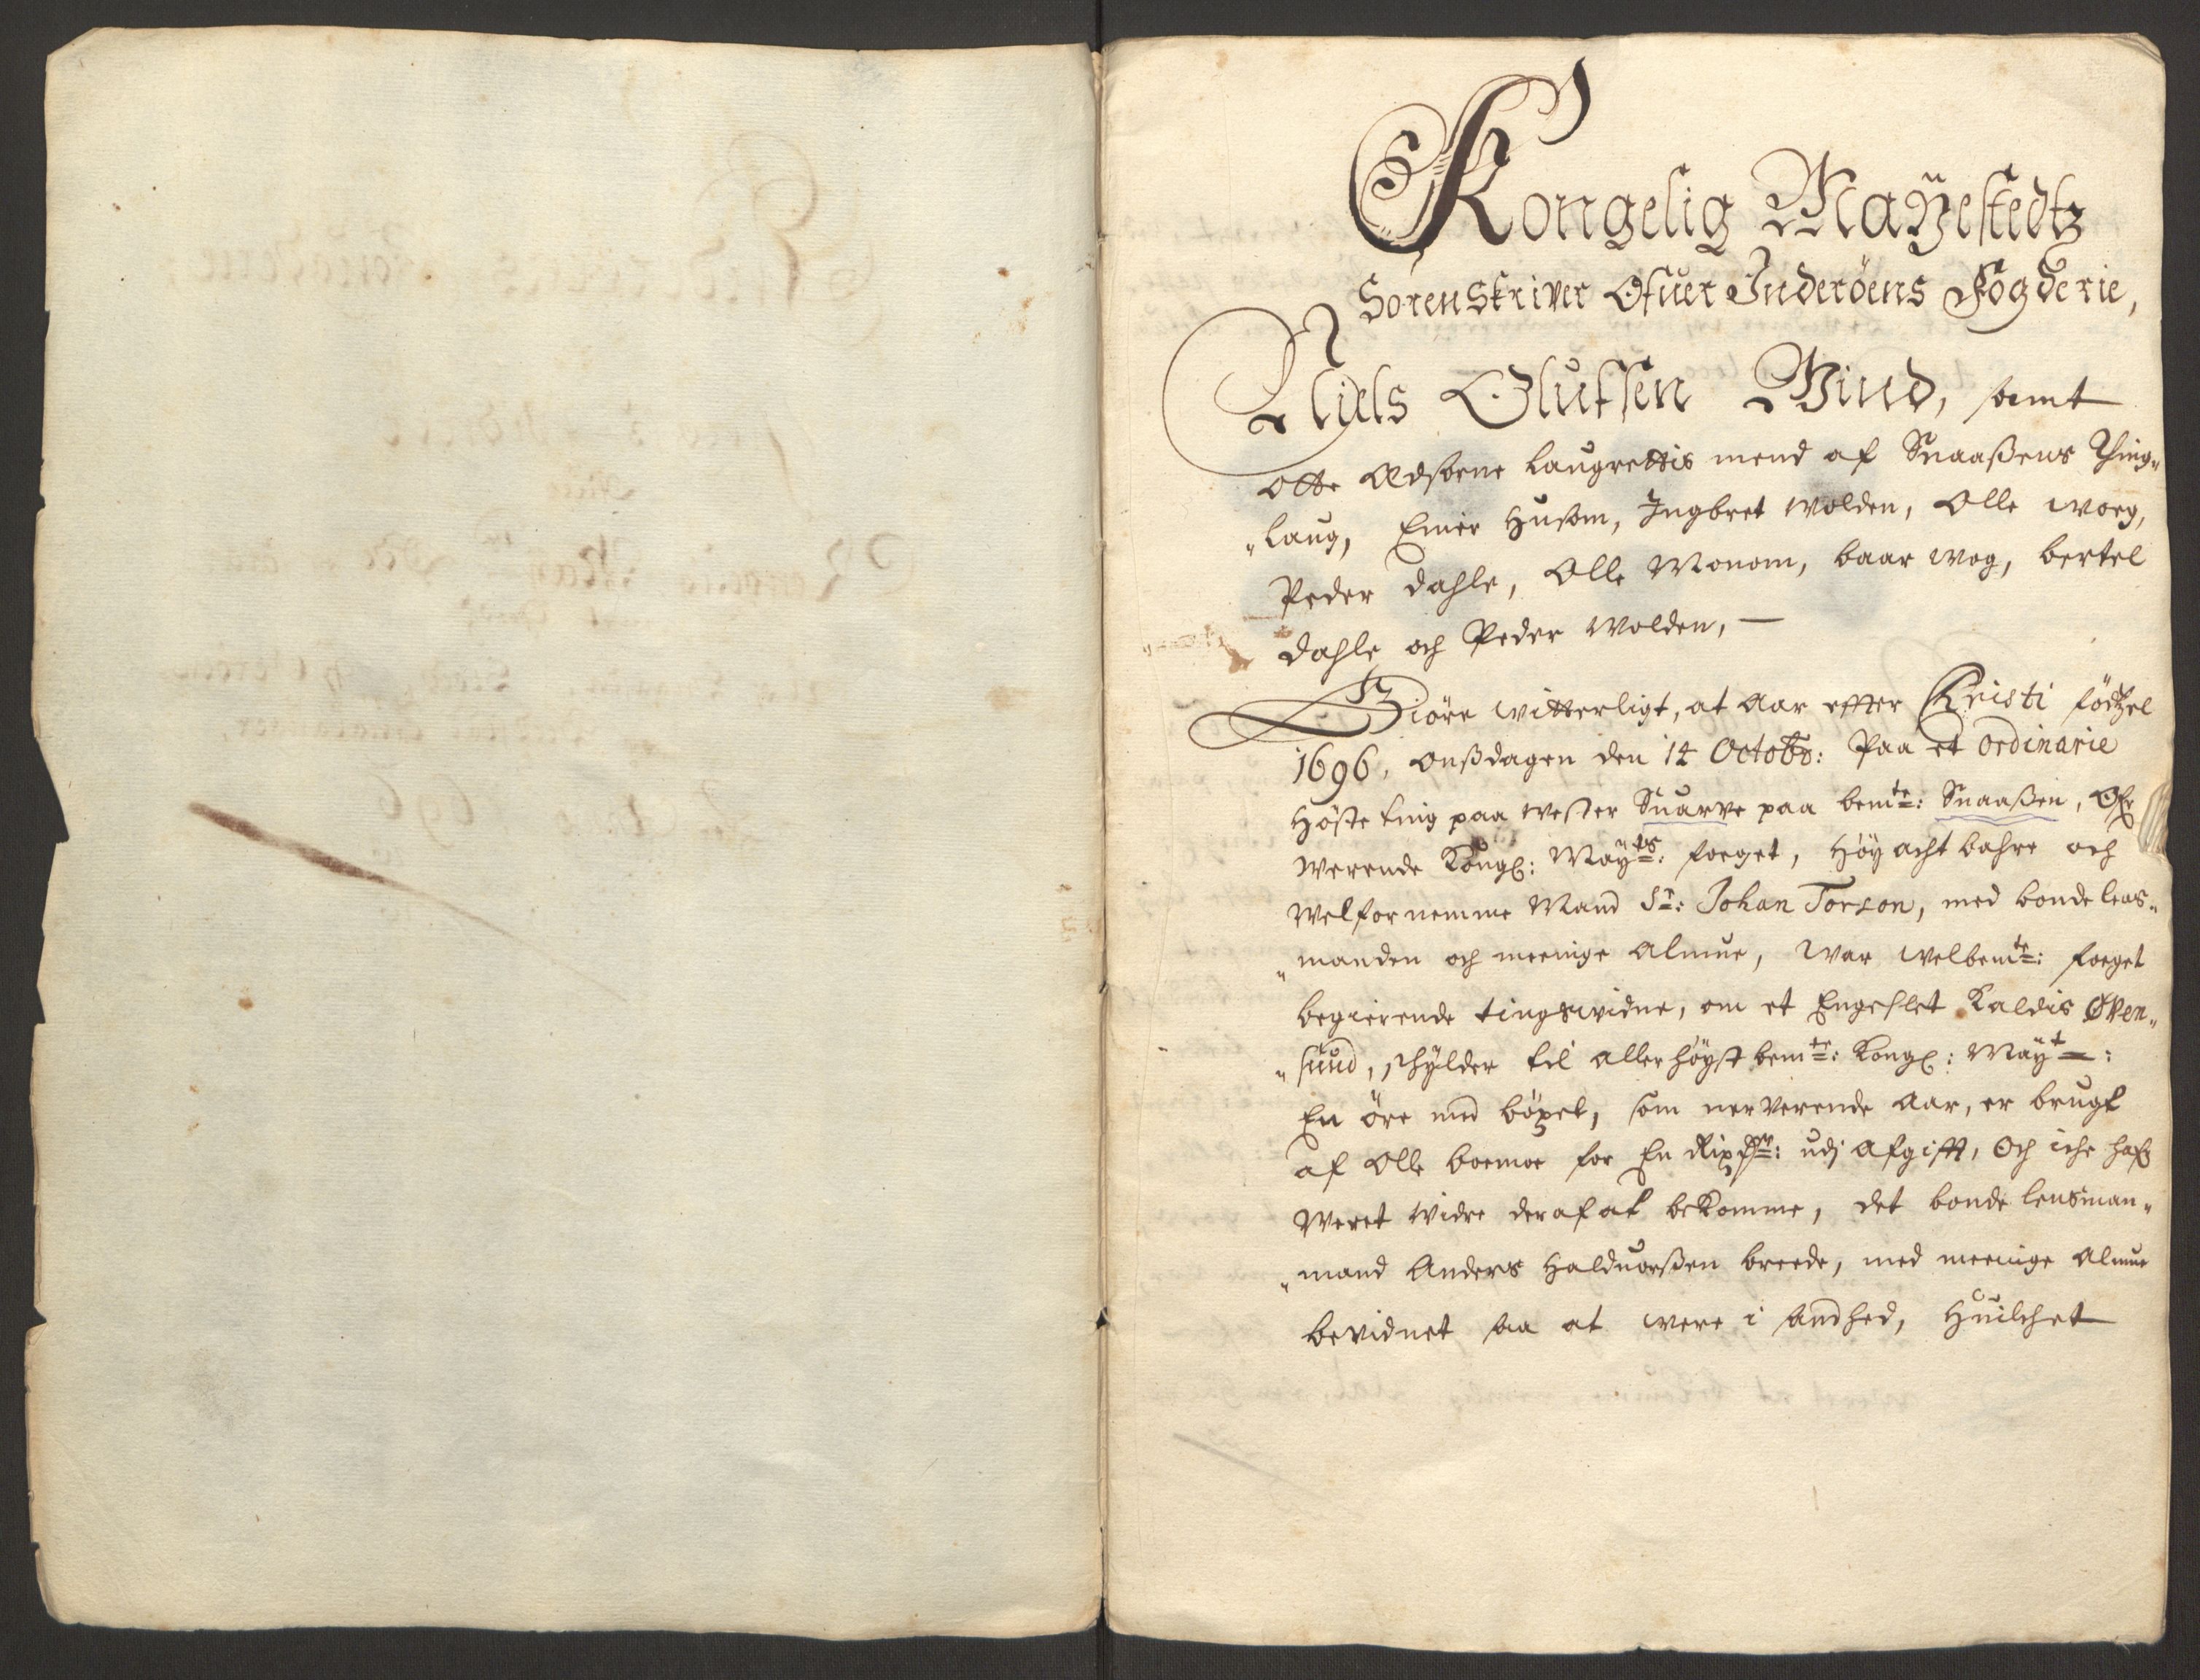 Kongelig Maÿestedtz
Sorenskriver Ofuer Inderöens Fögderie,
Niels Olufsen Wind, samt
otteÆdsorne Laugrettis mend af Snaaßens Thing„
„laug, Einer Husom, Ingbret Wolden, Olle Woeg,
Peder Dahle, Olle Monom, baar Wog, bertel
Dahle och Peder Wolden, —
Giöre Witterligt, at Aar effter Christi födtzel
1696, onßdagen den 14 Octobr: Paa et ordinarie
Höste ting paa Wester Snarve paa bemte: Snaaßen, Ofr
Werende Kongl: Maÿts: foeget, Höÿachtbahre och
Welfornemme Mand Sr: Johan Torson, med bonde lens„
„manden och meenige Almue, War Welbemte: foeget
begierende tingswidne, om et Engeslet Kaldis Øven„
„sund, schÿlder til allerhöÿst bemte: Kongl: Maÿt:
En öre med böxel, som nerverende Aar, er brugt
af Olle Boemoe for En Rixdr: udj Afgifft, Och iche hafr
Weret Widre deraf at bekomme, det bonde lensman„
„mand Anders Halduorßen breede, med meenige Almue
bevidnet saa at were i Sandhed, Huilchet